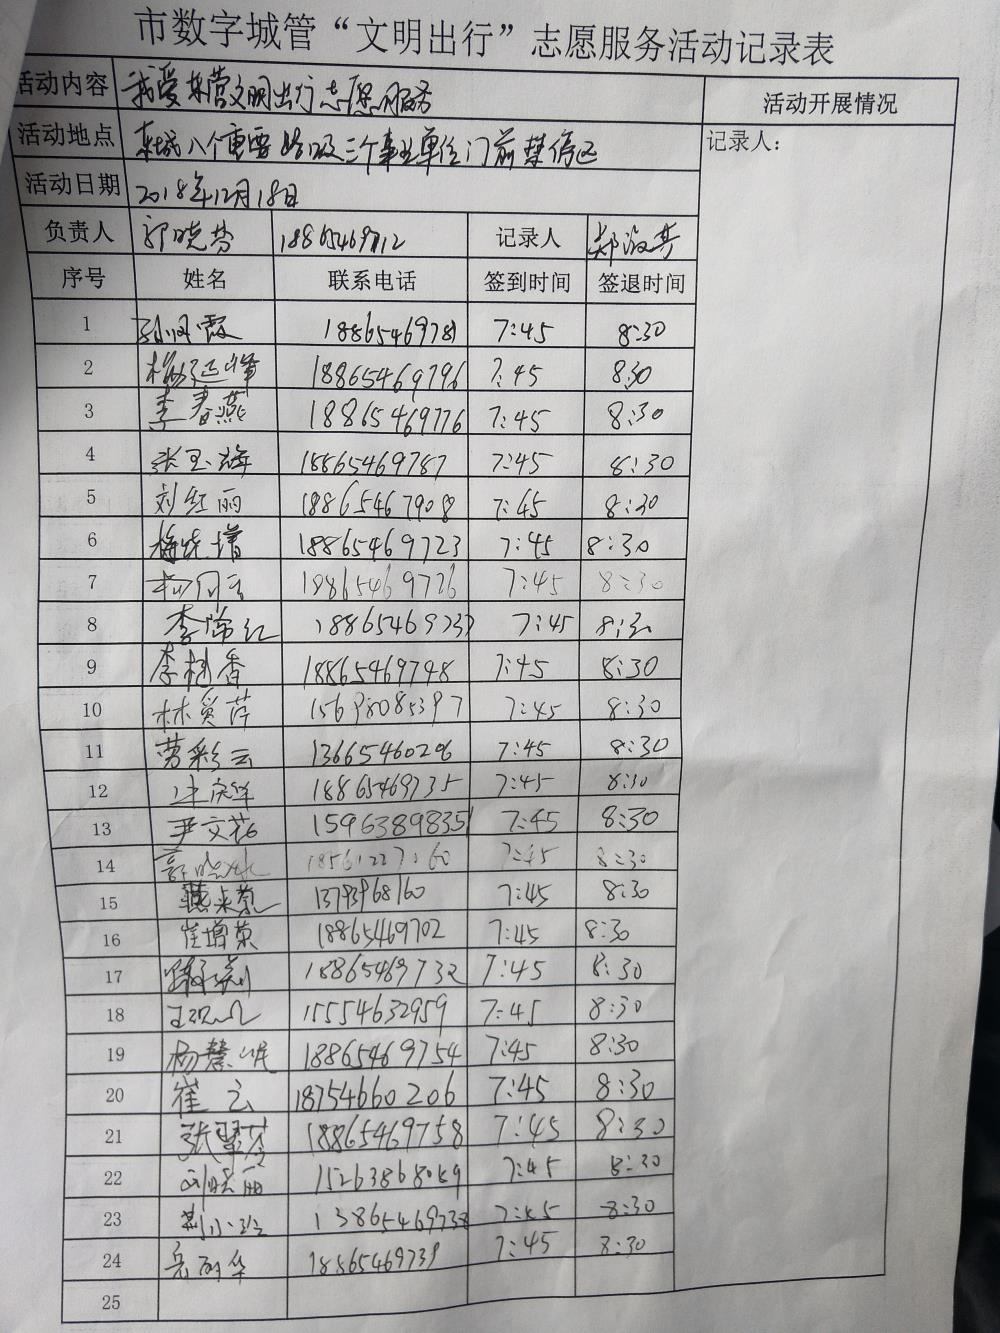 市数字城管“文明出行”志愿服务活动记录表
活动内容 我爱东营文明出行志愿服务 活动开展情况
活动地点 东城八个重要路口及三个事业单位门前禁停区 记录人：
活动日期 2018年12月18日
负责人 郭晓芳 18865469712 记录人
序号 姓名 联系电话 签到时间 签退时间
1 18865469781 7:45 8:30
2 杨延峰 18865469796 7:45 8:30
3 李春燕 18865469776 7:45 8:30
4 张玉海 18865469787 7:45 8:30
5 刘红丽 18865467908 7:45 8:30
6 18865469723 7:45 8:30
7 18865469726 7:45 8:30
8 李常红 18865469737 7:45 8:30
9 李树香 18865469748 7:45 8:30
10 林爱萍 15698085397 7:45 8:30
11 劳彩云 13665460206 7:45 8:30
12 18865469735 7:45 8:30
13 尹文花 15963898351 7:45 8:30
14 7:45 8:30
15 13793968160 7:45 8:30
16 崔增荣 18865469702 7:45 8:30
17 18865469732 7:45 8:30
18 15554632959 7:45 8:30
19 杨慧岷 18865469754 7:45 8:30
20 崔云 18754660206 7:45 8:30
21 张翠苓 18865469758 7:45 8:30
22 刘晓丽 15263868089 7:45 8:30
23 13865469738 7:45 8:30
24 18865469739 7:45 8:30
25